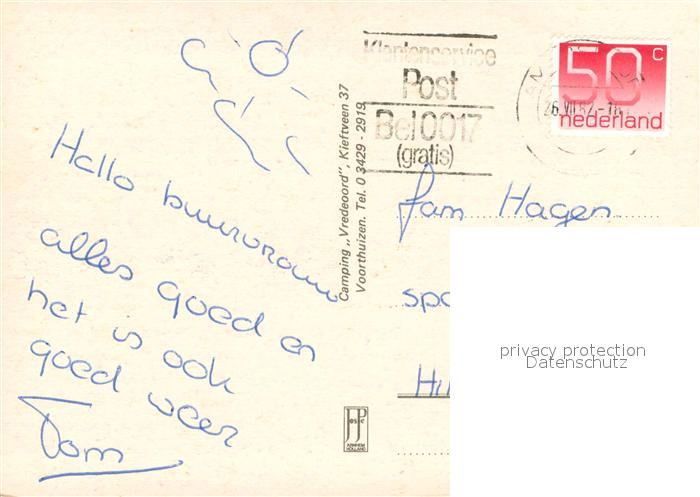 Hallo buurvrouw
alles goed en
het is ook
goed weer
Tom
Camping „Vredeoord", Kieftveen 37
Voorthuizen. Tel. 0 3429 - 2919
JosPe
ARNHEM
HOLLAND
Klantenservice
Post
Bel 0017
(gratis)
26.VII.82.-18
50 c
nederland
Fam Hagen
spo
Hil
privacy protection
Datenschutz